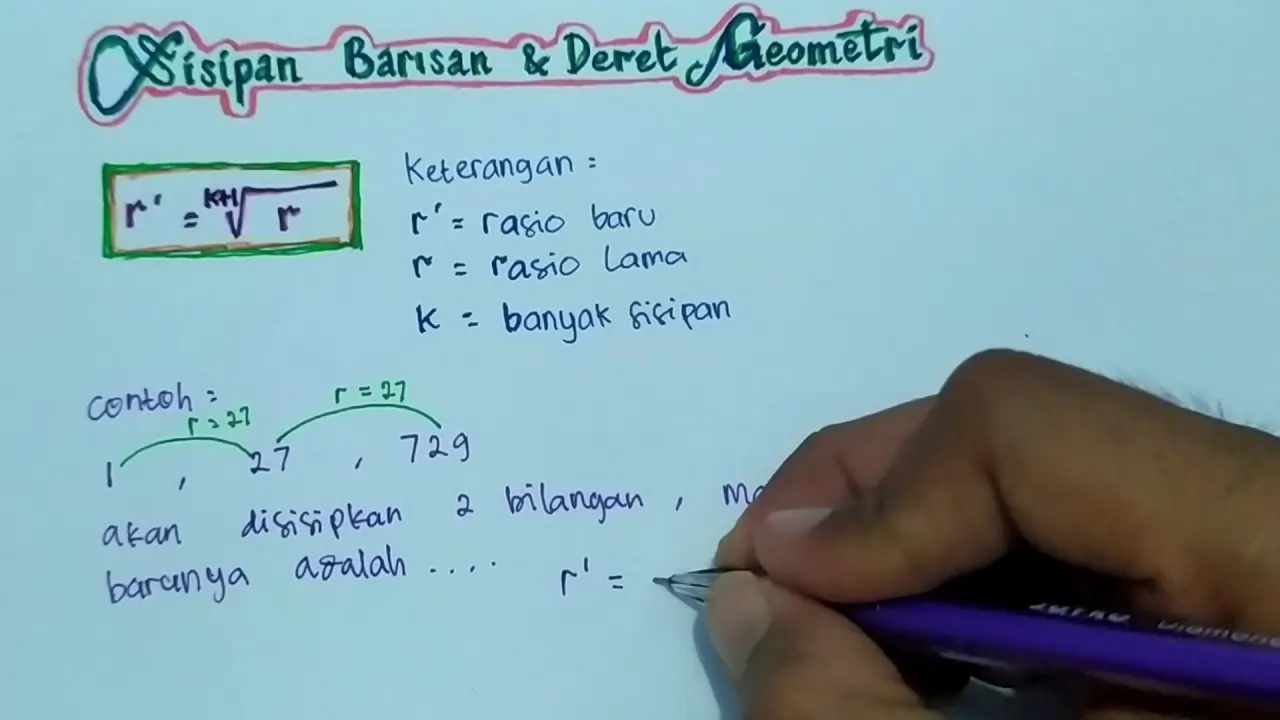 Sisipan Barisan & Deret Geometri
r' = ᵏ⁺¹√r
Keterangan :
r' = rasio baru
r = rasio Lama
k = banyak sisipan
contoh :
r = 27
r = 27
1 , 27 , 729
akan disisipkan 2 bilangan ,
barunya adalah ....
r' =